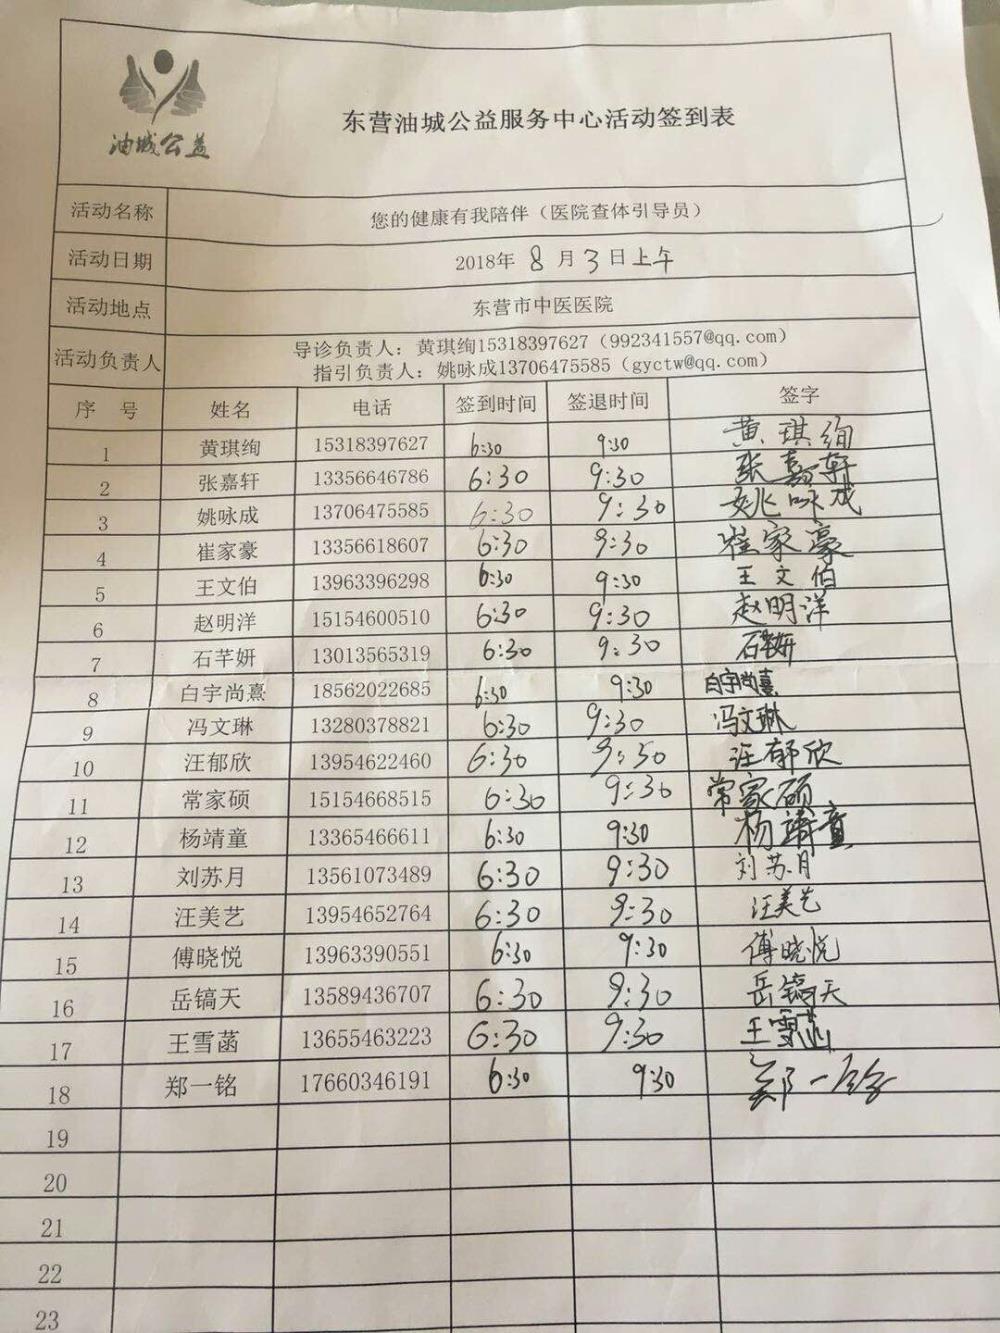 油城公益
东营油城公益服务中心活动签到表
活动名称 您的健康有我陪伴（医院查体引导员）
活动日期 2018年 8 月 3 日上午
活动地点 东营市中医医院
活动负责人 导诊负责人：黄琪绚15318397627（992341557@qq.com）
指引负责人：姚咏成13706475585（gyctw@qq.com）
序 号 姓名 电话 签到时间 签退时间 签字
1 黄琪绚 15318397627 6:30 9:30 黄琪绚
2 张嘉轩 13356646786 6:30 9:30 张嘉轩
3 姚咏成 13706475585 6:30 9:30 姚咏成
4 崔家豪 13356618607 6:30 9:30 崔家豪
5 王文伯 13963396298 6:30 9:30 王文伯
6 赵明洋 15154600510 6:30 9:30 赵明洋
7 石芊妍 13013565319 6:30 9:30 石芊妍
8 白宇尚熹 18562022685 6:30 9:30 白宇尚熹
9 冯文琳 13280378821 6:30 9:30 冯文琳
10 汪郁欣 13954622460 6:30 9:30 汪郁欣
11 常家硕 15154668515 6:30 9:30 常家硕
12 杨靖童 13365466611 6:30 9:30 杨靖童
13 刘苏月 13561073489 6:30 9:30 刘苏月
14 汪美艺 13954652764 6:30 9:30 汪美艺
15 傅晓悦 13963390551 6:30 9:30 傅晓悦
16 岳镐天 13589436707 6:30 9:30 岳镐天
17 王雪菡 13655463223 6:30 9:30 王雪菡
18 郑一铭 17660346191 6:30 9:30 郑一铭
19
20
21
22
23